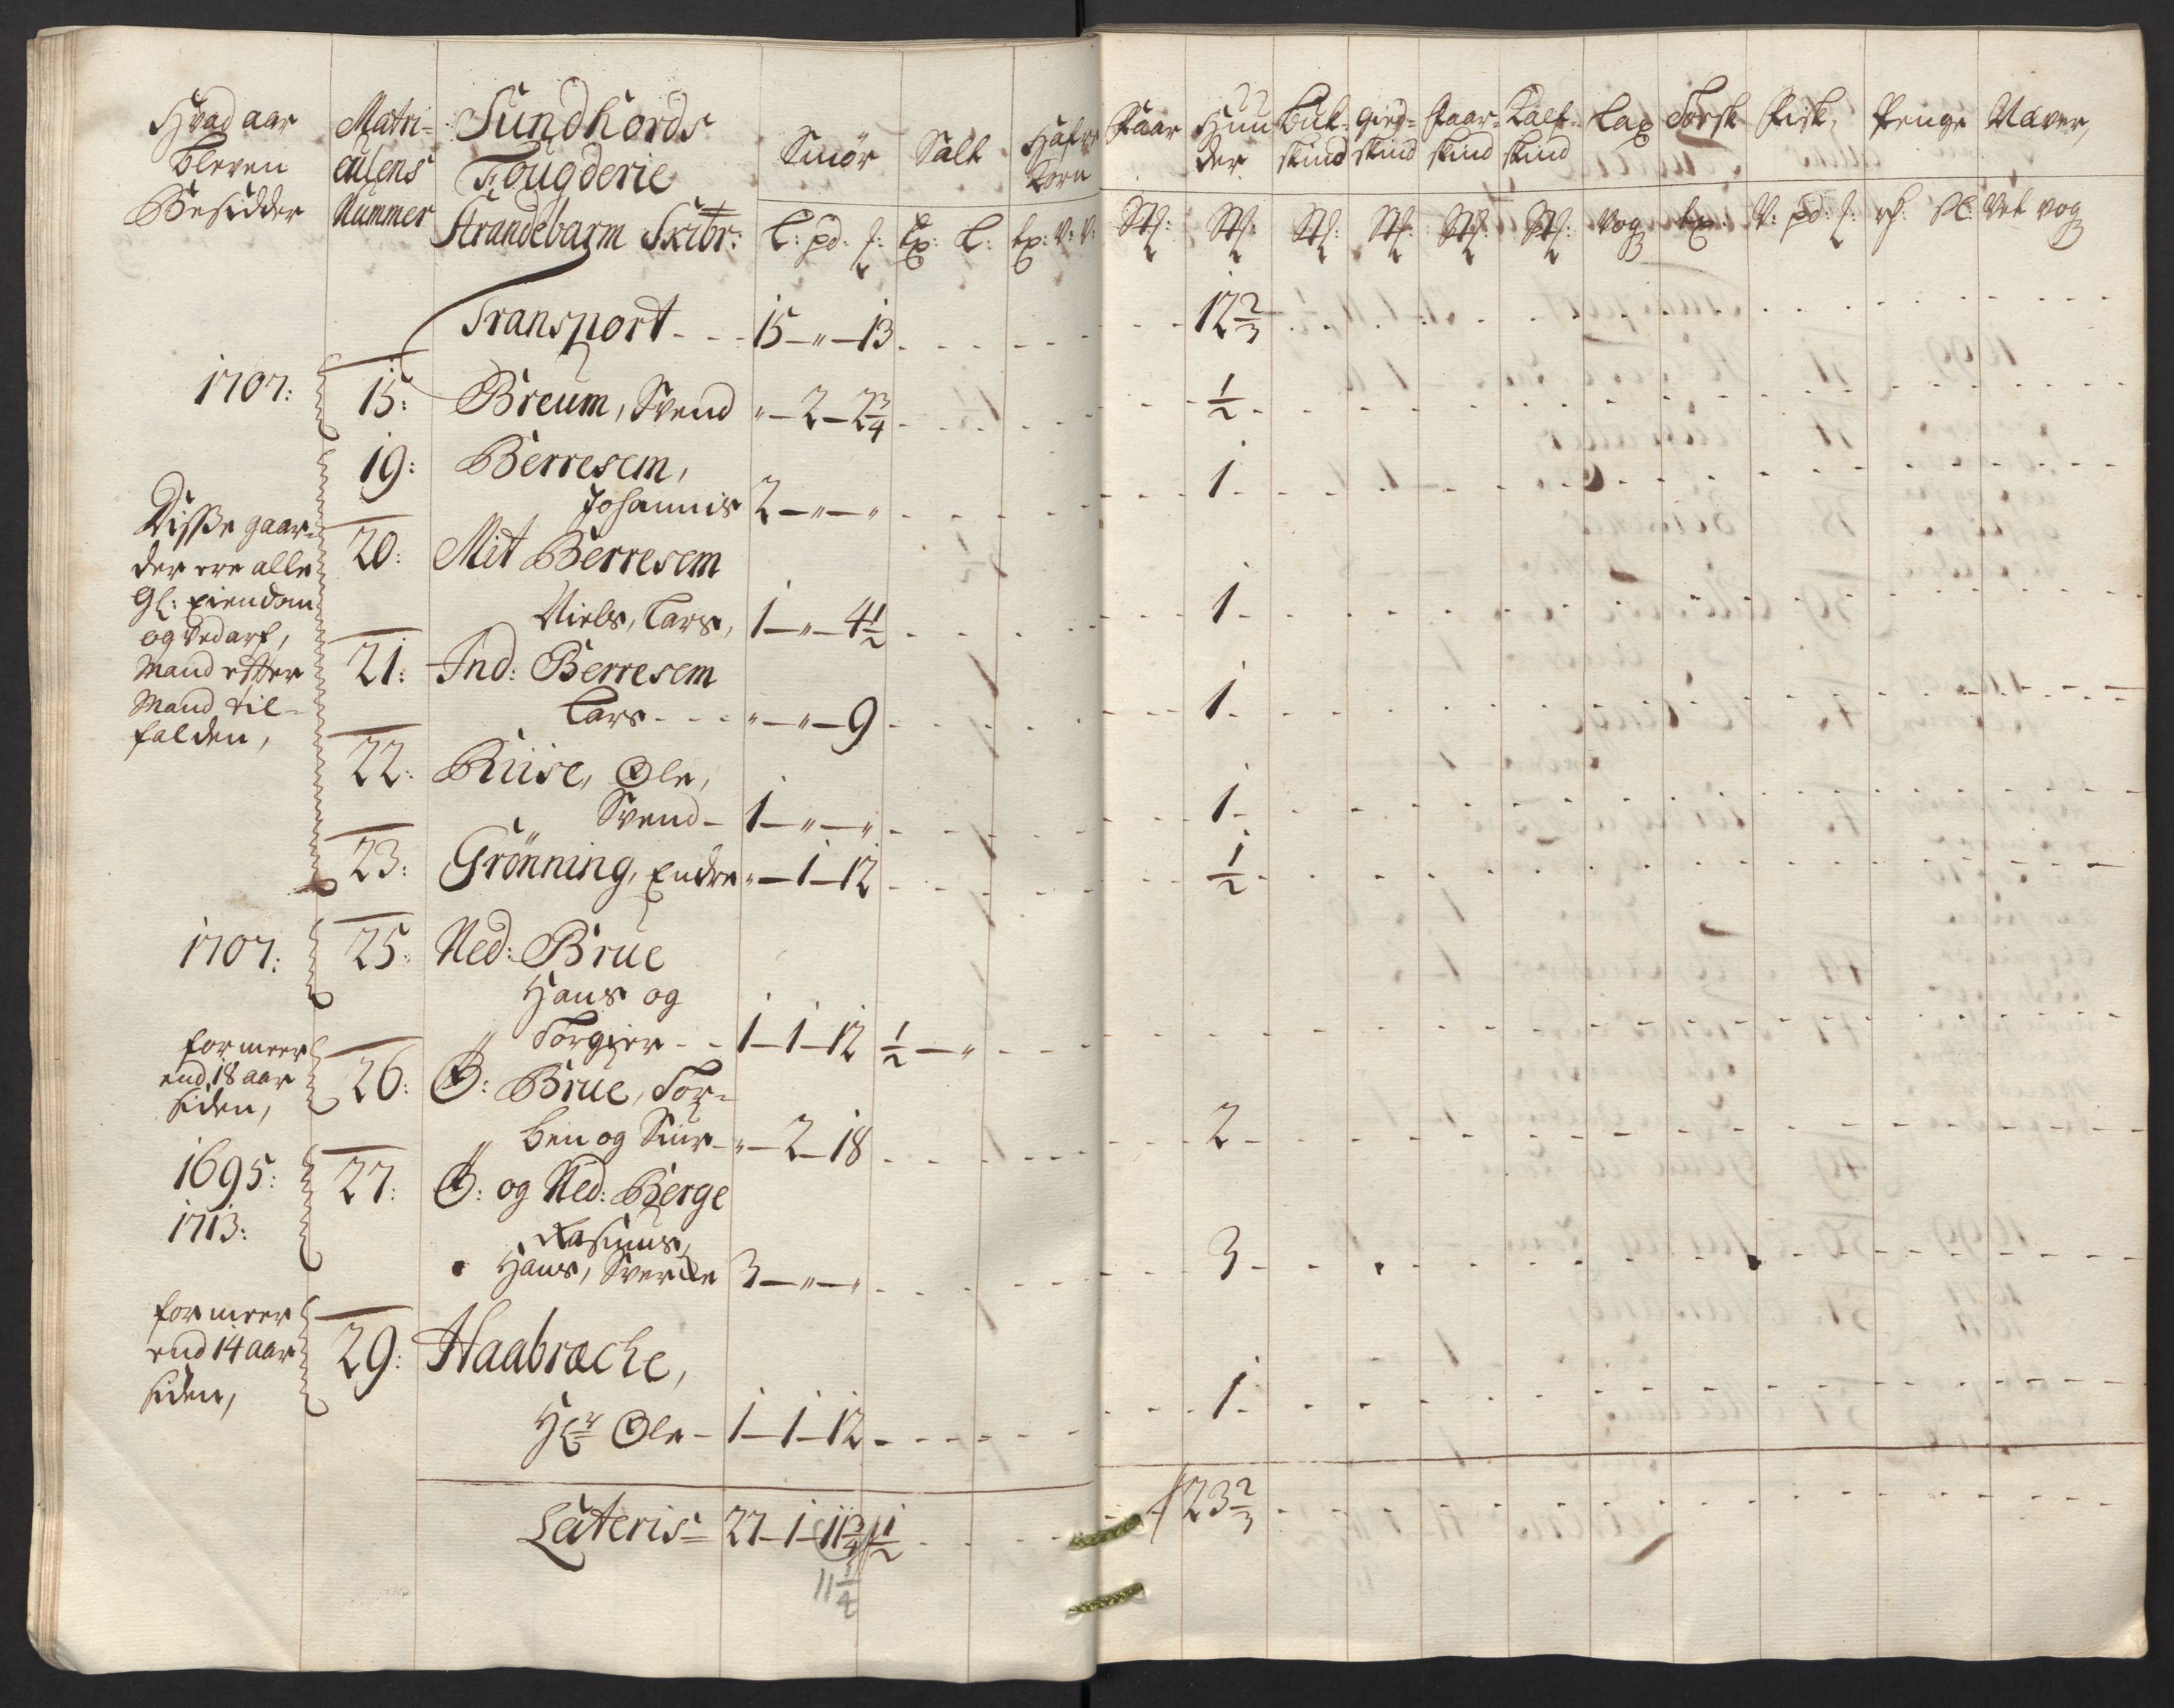 Hvad aar
bleven
Besidder
Matri-
culens
Nummer
Sundhords
Fougderie
Strandebarm Skibr:
Smör
Salt
Hafre
Korn
L: pd: ℔:
tp: L:
tp: V: V:
Faar
Huu
der
buk-
skind
gied-
skind
faar-
skind
Kalf-
skind
Lax
Torsk
Fisk,
Penge
Næver,
St:
St:
St:
St:
St:
St:
Vog
tp:
V: pd: ℔:
rf: s:
Vet vog
Transport - - - 15 — " — 13 - - - 12 2/3
1707: 15: Breum, Svend " — 2 — 2 3/4 - - - 1/2
19: Berresem,
Johannis 2 — " — " - - - 1
Disse gaar-
der ere alle
Gl: Eiendom
og ved arf,
Mand efter
Mand til-
falden,
20: Mit Berresem
Niels, Lars, 1 — " — 4 1/2 - - - 1
21: Ind: Berresem
Lars - - - " — " — 9 - - - 1
22: Riise, Ole,
Svend - 1 — " — " - - - 1
23: Grönning, Endre " — 1 — 12 - - - 1/2
1707: 25: Ned: Brue
Hans og
Torgier - - 1 — 1 — 12 1/2 — " - - -
for meer
end 18 aar
siden,
26: Ö: Brue, Tor-
ben og Siur - " — 2 — 18 - - - 2
1695:
1713:
27: Ö: og Ned: Berge
Rasmus,
Hans, Svercke 3 — " — " - - - 3
for meer
end 14 aar
siden,
29: Haabræche,
Hr Ole - 1 — 1 — 12 - - - 1
Lateris 27 — 1 — 11 3/4 1/2 - - - 23 2/3
11 1/4